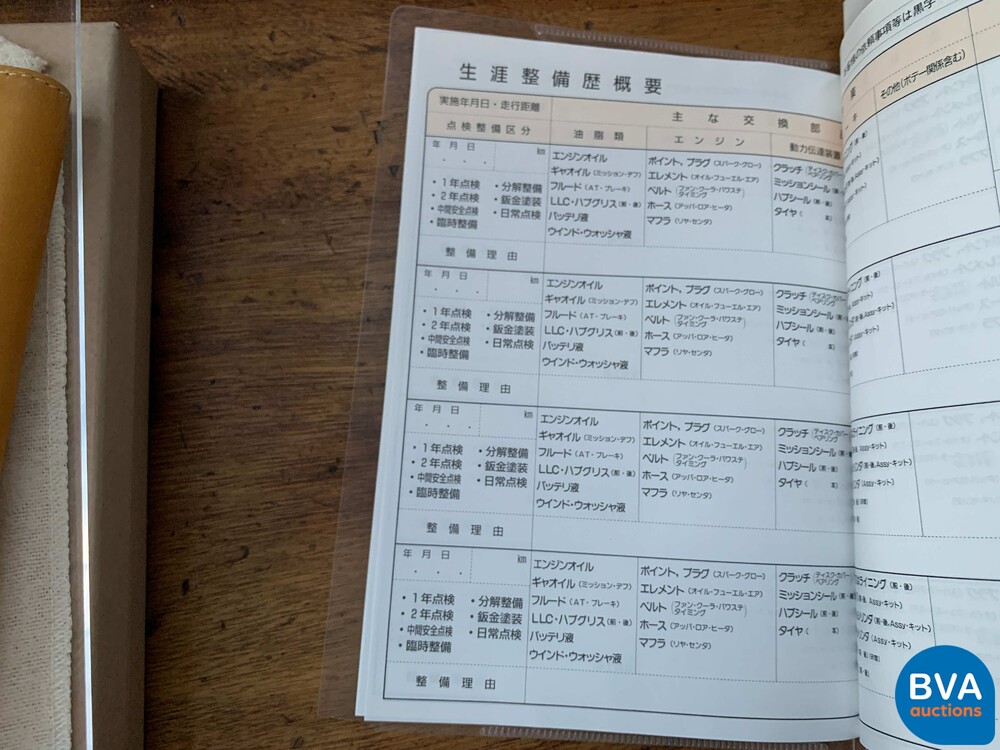 生涯整備歴概要
実施年月日・走行距離
主な交換部
点検整備区分
油脂類
エンジン
動力伝達装置
年 月 日 km
・1年点検 ・分解整備
・2年点検 ・鈑金塗装
・中間安全点検 ・日常点検
・臨時整備
整備理由
エンジンオイル
ギャオイル(ミッション・デフ)
フルード(AT・ブレーキ)
LLC・ハブグリス(前・後)
バッテリ液
ウインド・ウォッシャ液
ポイント、プラグ(スパーク・グロー)
エレメント(オイル・フューエル・エア)
ベルト(ファン・クーラ・パワステ タイミング)
ホース(アッパ・ロア・ヒータ)
マフラ(リヤ・センタ)
クラッチ(ディスク・カバー ベアリング
ミッションシール(前・
ハブシール(前・後)
タイヤ( 本)
年 月 日 km
・1年点検 ・分解整備
・2年点検 ・鈑金塗装
・中間安全点検 ・日常点検
・臨時整備
整備理由
エンジンオイル
ギャオイル(ミッション・デフ)
フルード(AT・ブレーキ)
LLC・ハブグリス(前・後)
バッテリ液
ウインド・ウォッシャ液
ポイント、プラグ(スパーク・グロー)
エレメント(オイル・フューエル・エア)
ベルト(ファン・クーラ・パワステ タイミング)
ホース(アッパ・ロア・ヒータ)
マフラ(リヤ・センタ)
クラッチ(ディスク・カバー ベアリング
ミッションシール(前・
ハブシール(前・後)
タイヤ( 本)
年 月 日 km
・1年点検 ・分解整備
・2年点検 ・鈑金塗装
・中間安全点検 ・日常点検
・臨時整備
整備理由
エンジンオイル
ギャオイル(ミッション・デフ)
フルード(AT・ブレーキ)
LLC・ハブグリス(前・後)
バッテリ液
ウインド・ウォッシャ液
ポイント、プラグ(スパーク・グロー)
エレメント(オイル・フューエル・エア)
ベルト(ファン・クーラ・パワステ タイミング)
ホース(アッパ・ロア・ヒータ)
マフラ(リヤ・センタ)
クラッチ(ディスク・カバー ベアリング
ミッションシール(前・
ハブシール(前・後)
タイヤ( 本)
年 月 日 km
・1年点検 ・分解整備
・2年点検 ・鈑金塗装
・中間安全点検 ・日常点検
・臨時整備
整備理由
エンジンオイル
ギャオイル(ミッション・デフ)
フルード(AT・ブレーキ)
LLC・ハブグリス(前・後)
バッテリ液
ウインド・ウォッシャ液
ポイント、プラグ(スパーク・グロー)
エレメント(オイル・フューエル・エア)
ベルト(ファン・クーラ・パワステ タイミング)
ホース(アッパ・ロア・ヒータ)
マフラ(リヤ・センタ)
クラッチ(ディスク・カバー ベアリング
ミッションシール(前・
ハブシール(前・後)
タイヤ( 本)
の依頼事項等は黒字
その他(ボデー関係含む)
ライニング(前・後)
後、Assy・キット)
(Assy・キット)
ライニング(前・後)
(前・後、Assy・キット)
(Assy・キット)
BVA
auctions